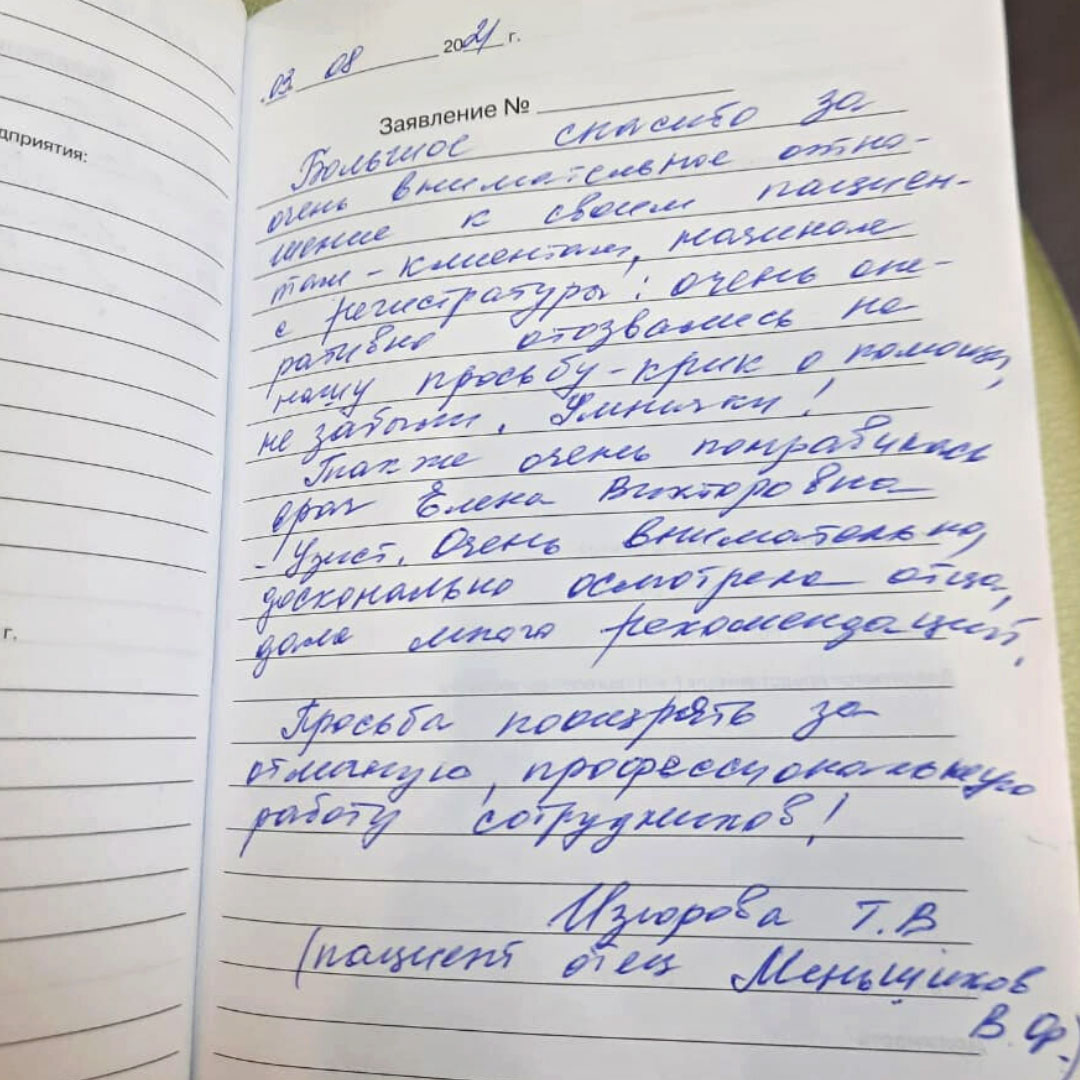 дприятия:
г.
03 08 2021 г.
Заявление №
Большое спасибо за
очень внимательное отно-
шение к своим пациен-
там - клиентам, начиная
с регистратуры: очень опе-
ративно отозвались на
нашу просьбу-крик о помощи,
не забыли. Умнички!
Также очень понравилась
врач Елена Викторовна
- Узист. Очень внимательно,
досконально осмотрела отца,
дала много рекомендаций.
Просьба поощрять за
отличную, профессиональную
работу сотрудников!
Изюрова Т.В
(пациент отец Меньщиков
В.Ф.)